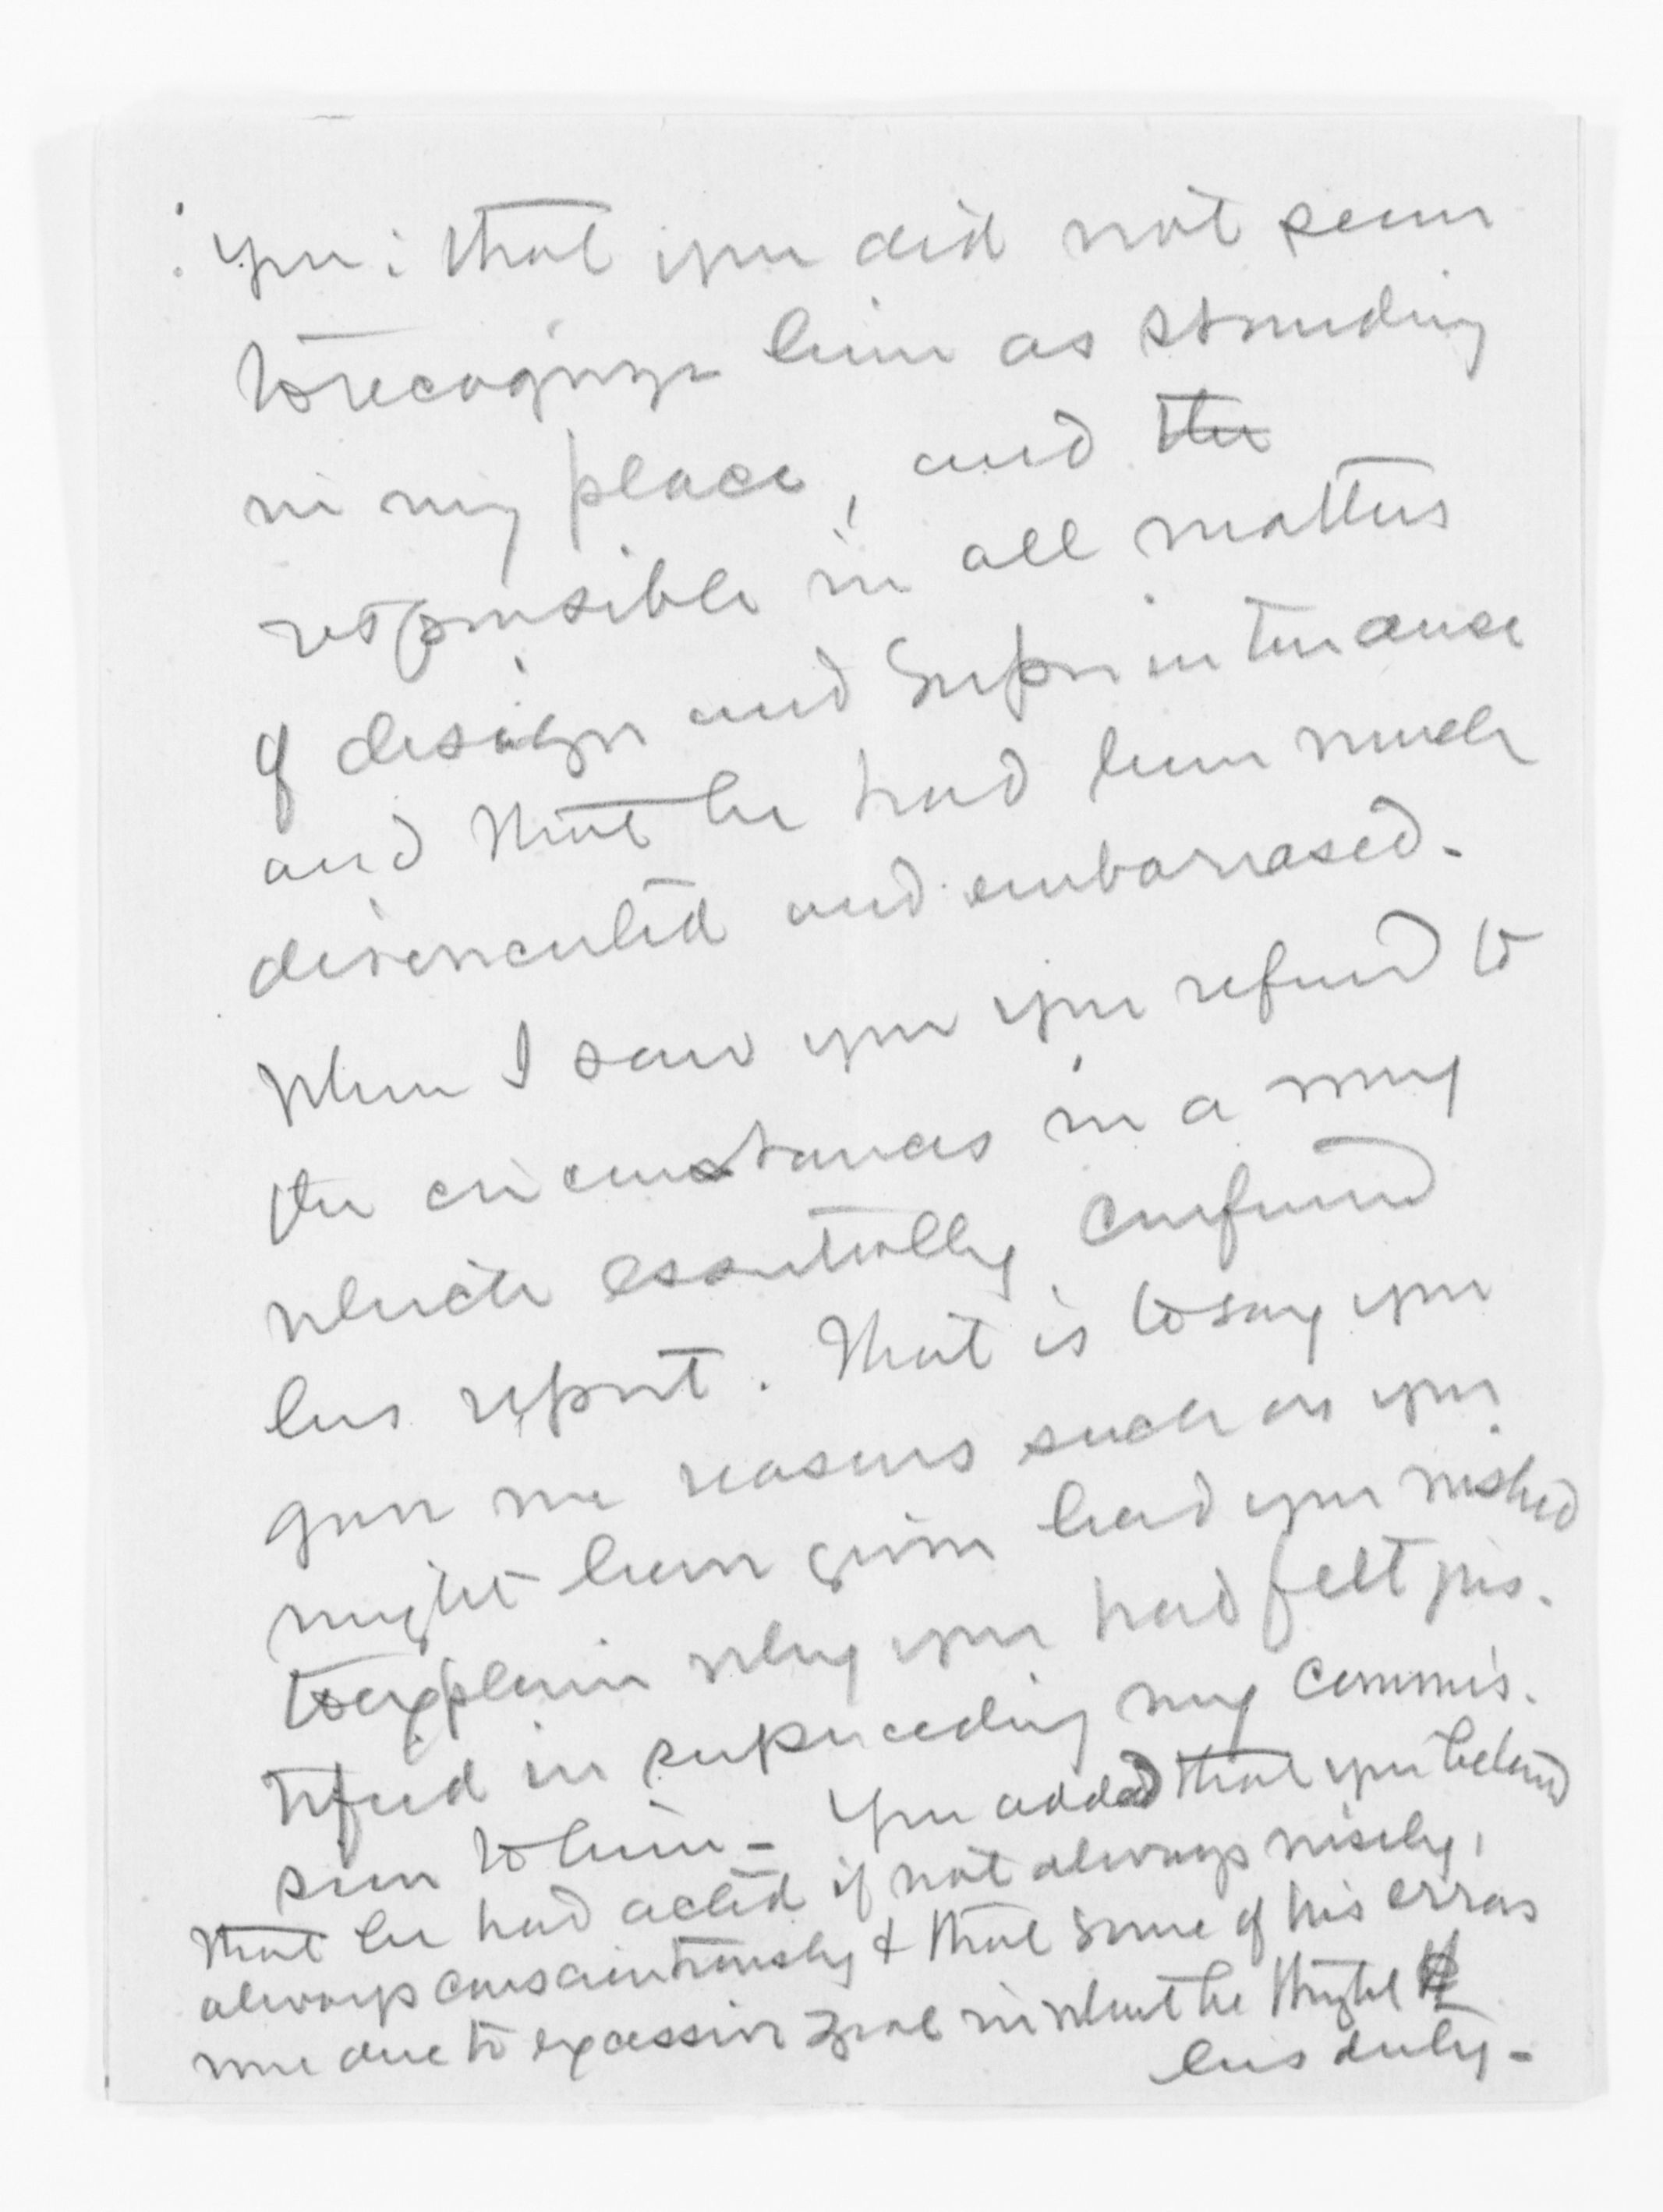 you; that you did not seem
to recognize him as standing
in my place, and the
responsible in all matters
of design and Superintenance
and that he had been much
disconcerted and embarrased.
When I saw you you refered to
the circumstances in a way
which essentially confirmed
his report. That is to say you
gave me reasons such as you
might have given had you wished
to explain why you had felt jus-
tified in superceding my commis-
sion to him - You added that you believed
that he had acted if not always wisely,
always consciientiously & that some of his errors
were due to excessive zeal in what he thought
his duty -